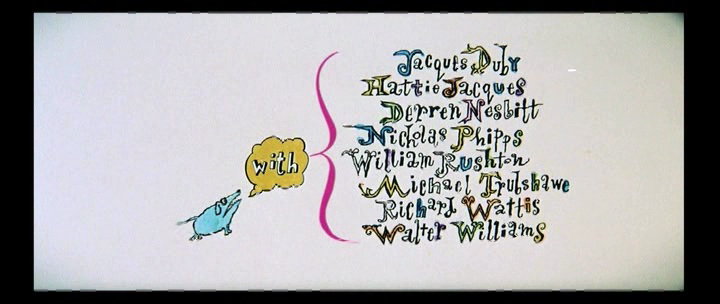 with
Jacques Duby
Hattie Jacques
Derren Nesbitt
Nicholas Phipps
William Rushton
Michael Trubshawe
Richard Wattis
Walter Williams